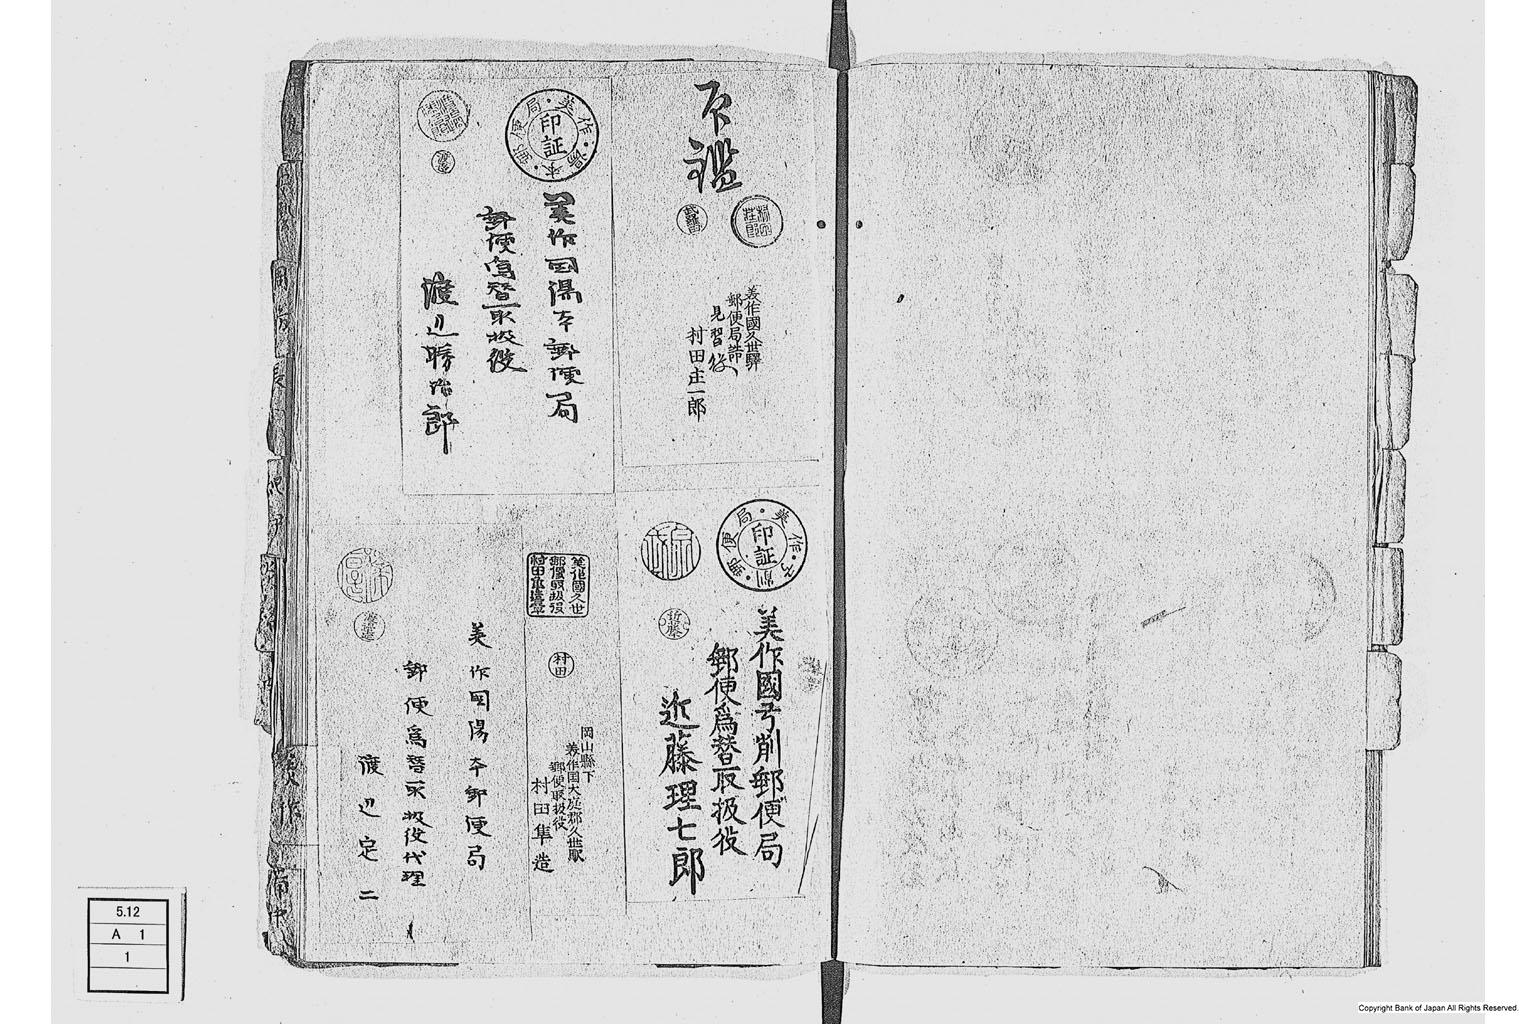 印鑑
美作國久世驛
郵便局詰
見習役
村田庄一郎
美作・湯本・郵便局・
印証
美作国湯本郵便局
郵便為替取扱役
渡辺勝治郎
美作・弓削・郵便局・
印証
美作國弓削郵便局
郵便爲替取扱役
近藤理七郎
近藤
美作國久世
郵便取扱役
村田
岡山縣下
美作国大庭郡久世駅
郵便取扱役
村田隼造
美作国湯本郵便局
郵便爲替取扱役代理
渡辺定二
美作
備中
5.12
A 1
1
Copyright Bank of Japan All Rights Reserved.